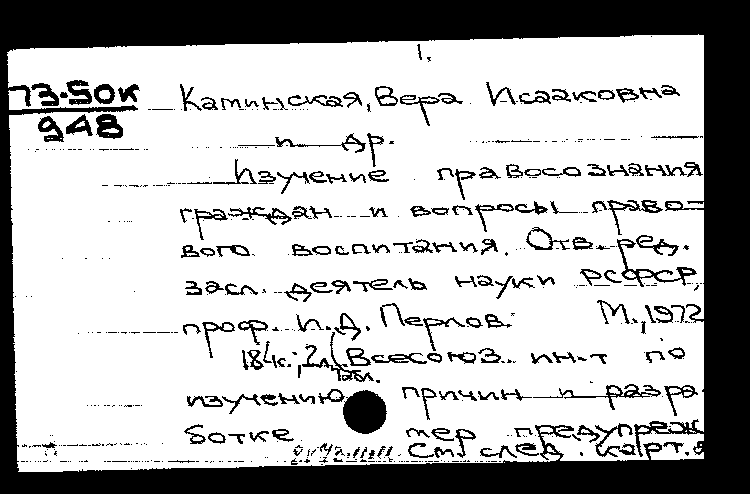 1.
73-50к
948
Каминская, Вера Исааковна
и др.
Изучение правосознания
граждан и вопросы право-
вого воспитания. Отв. ред.
засл. деятель науки РСФСР,
проф. И.Д. Перлов. М., 1972
184с.; 2л. табл. (Всесоюз. ин-т по
изучению причин и разра-
ботке мер предупреж
См. след. карт.